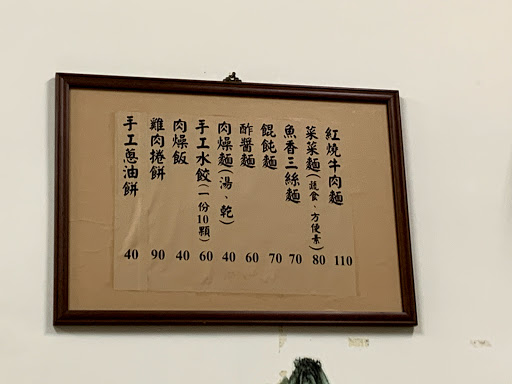 紅燒牛肉麵 110
菜菜麵(蔬食、方便素) 80
魚香三絲麵 70
餛飩麵 70
酢醬麵 60
肉燥麵(湯、乾) 40
手工水餃(一份10顆) 60
肉燥飯 40
雞肉捲餅 90
手工蔥油餅 40